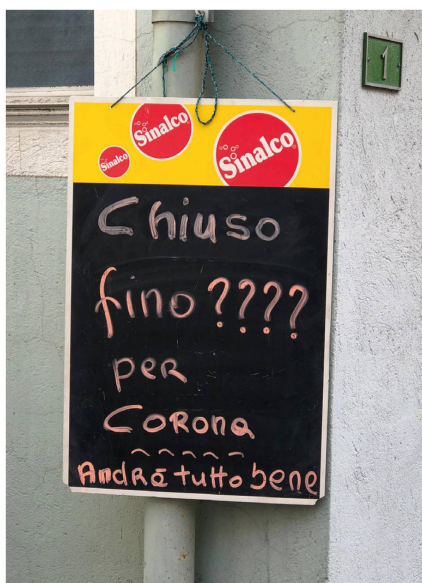 Sinalco
Sinalco
Sinalco
1
Chiuso
fino ????
per
CORONA
Andrà tutto bene